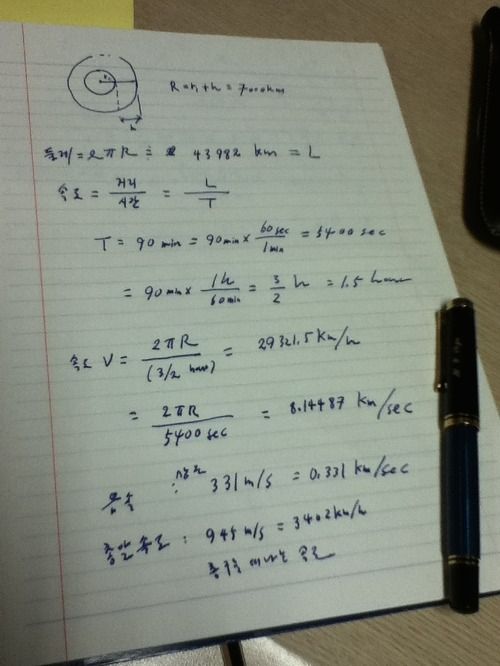 R = r₁ + h = 7000km
h
둘레 = 2πR ≒ 43982 km = L
속도 = 거리/시간 = L/T
T = 90 min = 90min × 60sec/1min = 5400 sec
= 90min × 1h/60min = 3/2 h = 1.5 hour
속도 V = 2πR/(3/2 hour) = 29321.5 Km/h
= 2πR/5400 sec = 8.14487 Km/sec
음속 : 331 m/s = 0.331 km/sec
총알 속도 : 945 m/s = 3402 km/h
총구를 떠나는 속도